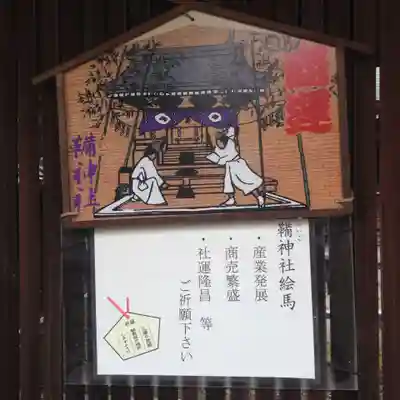 鞴神社
鞴神社絵馬
・産業発展
・商売繁盛
・社運隆昌 等
ご祈願下さい